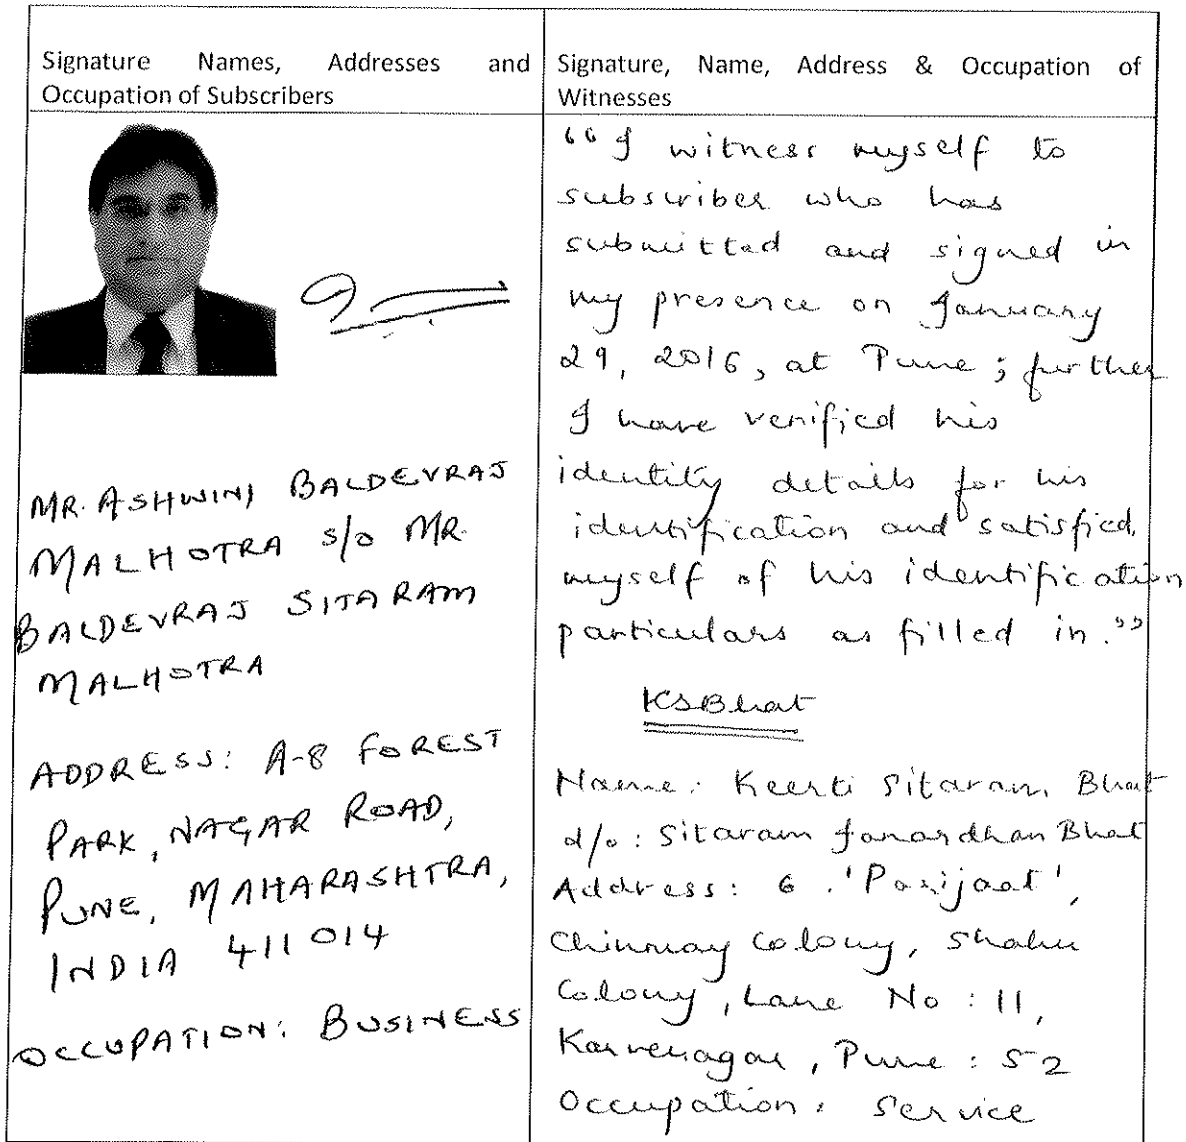 Signature Names, Addresses and
Occupation of Subscribers
MR. ASHWINI BALDEVRAJ
MALHOTRA s/o MR.
BALDEVRAJ SITARAM
MALHOTRA
ADDRESS: A-8 FOREST
PARK, NAGAR ROAD,
PUNE, MAHARASHTRA,
INDIA 411014
OCCUPATION: BUSINESS
Signature, Name, Address & Occupation of
Witnesses
"I witness myself to
subscriber who has
submitted and signed in
my presence on January
29, 2016, at Pune; further
I have verified his
identity details for his
identification and satisfied
myself of his identification
particulars as filled in."
KSBhat
Name: Keerti Sitaram Bhat
d/o: Sitaram Janardhan Bhat
Address: 6. 'Parijaat',
Chinmay Colony, Shahu
Colony, Lane No: 11,
Karvenagar, Pune: 52
Occupation: Service